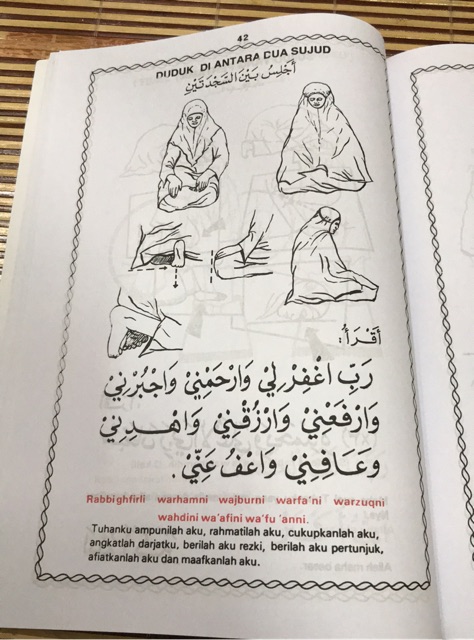 42
DUDUK DI ANTARA DUA SUJUD
أَجْلِسُ بَيْنَ السَّجْدَتَيْنِ
أَقْرَأُ:
رَبِّ اغْفِرْلِي وَارْحَمْنِيْ وَاجْبُرْنِيْ
وَارْفَعْنِيْ وَارْزُقْنِيْ وَاهْدِنِيْ
وَعَافِنِيْ وَاعْفُ عَنِّيْ.
Rabbighfirli warhamni wajburni warfa'ni warzuqni
wahdini wa'afini wa'fu 'anni.
Tuhanku ampunilah aku, rahmatilah aku, cukupkanlah aku,
angkatlah darjatku, berilah aku rezki, berilah aku pertunjuk,
afiatkanlah aku dan maafkanlah aku.